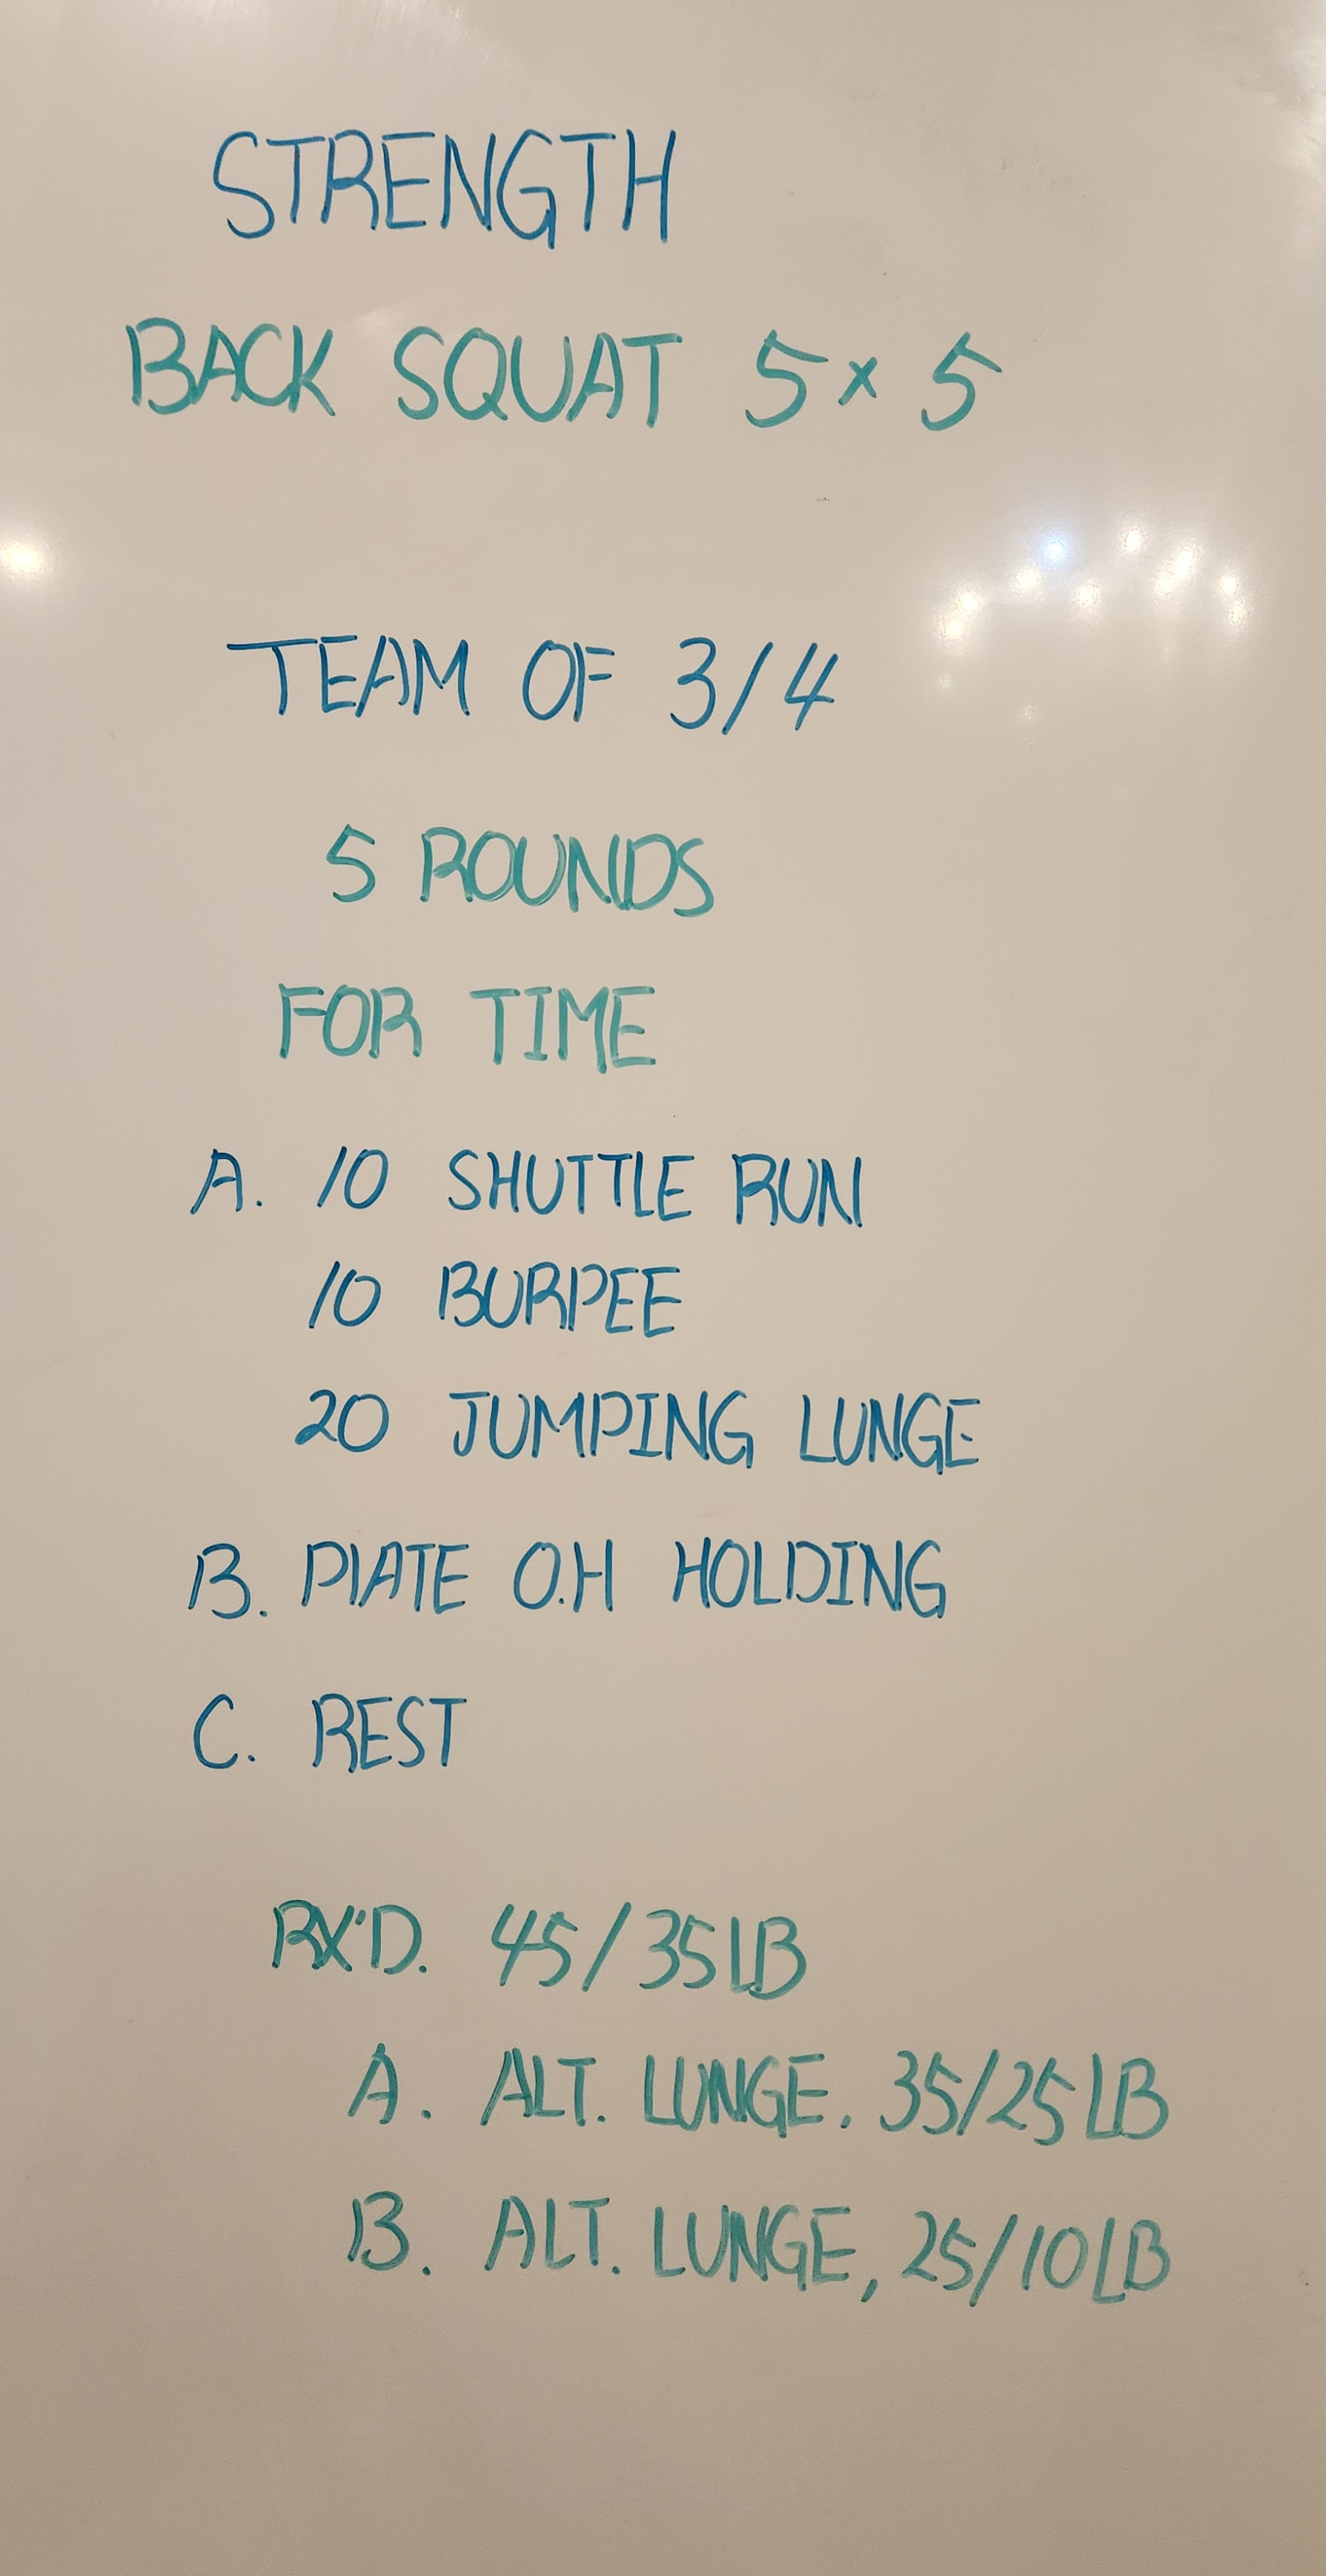 STRENGTH
BACK SQUAT 5 x 5
TEAM OF 3/4
5 ROUNDS
FOR TIME
A. 10 SHUTTLE RUN
10 BURPEE
20 JUMPING LUNGE
B. PLATE O.H HOLDING
C. REST
RX'D. 45/35LB
A. ALT. LUNGE. 35/25LB
B. ALT. LUNGE, 25/10LB